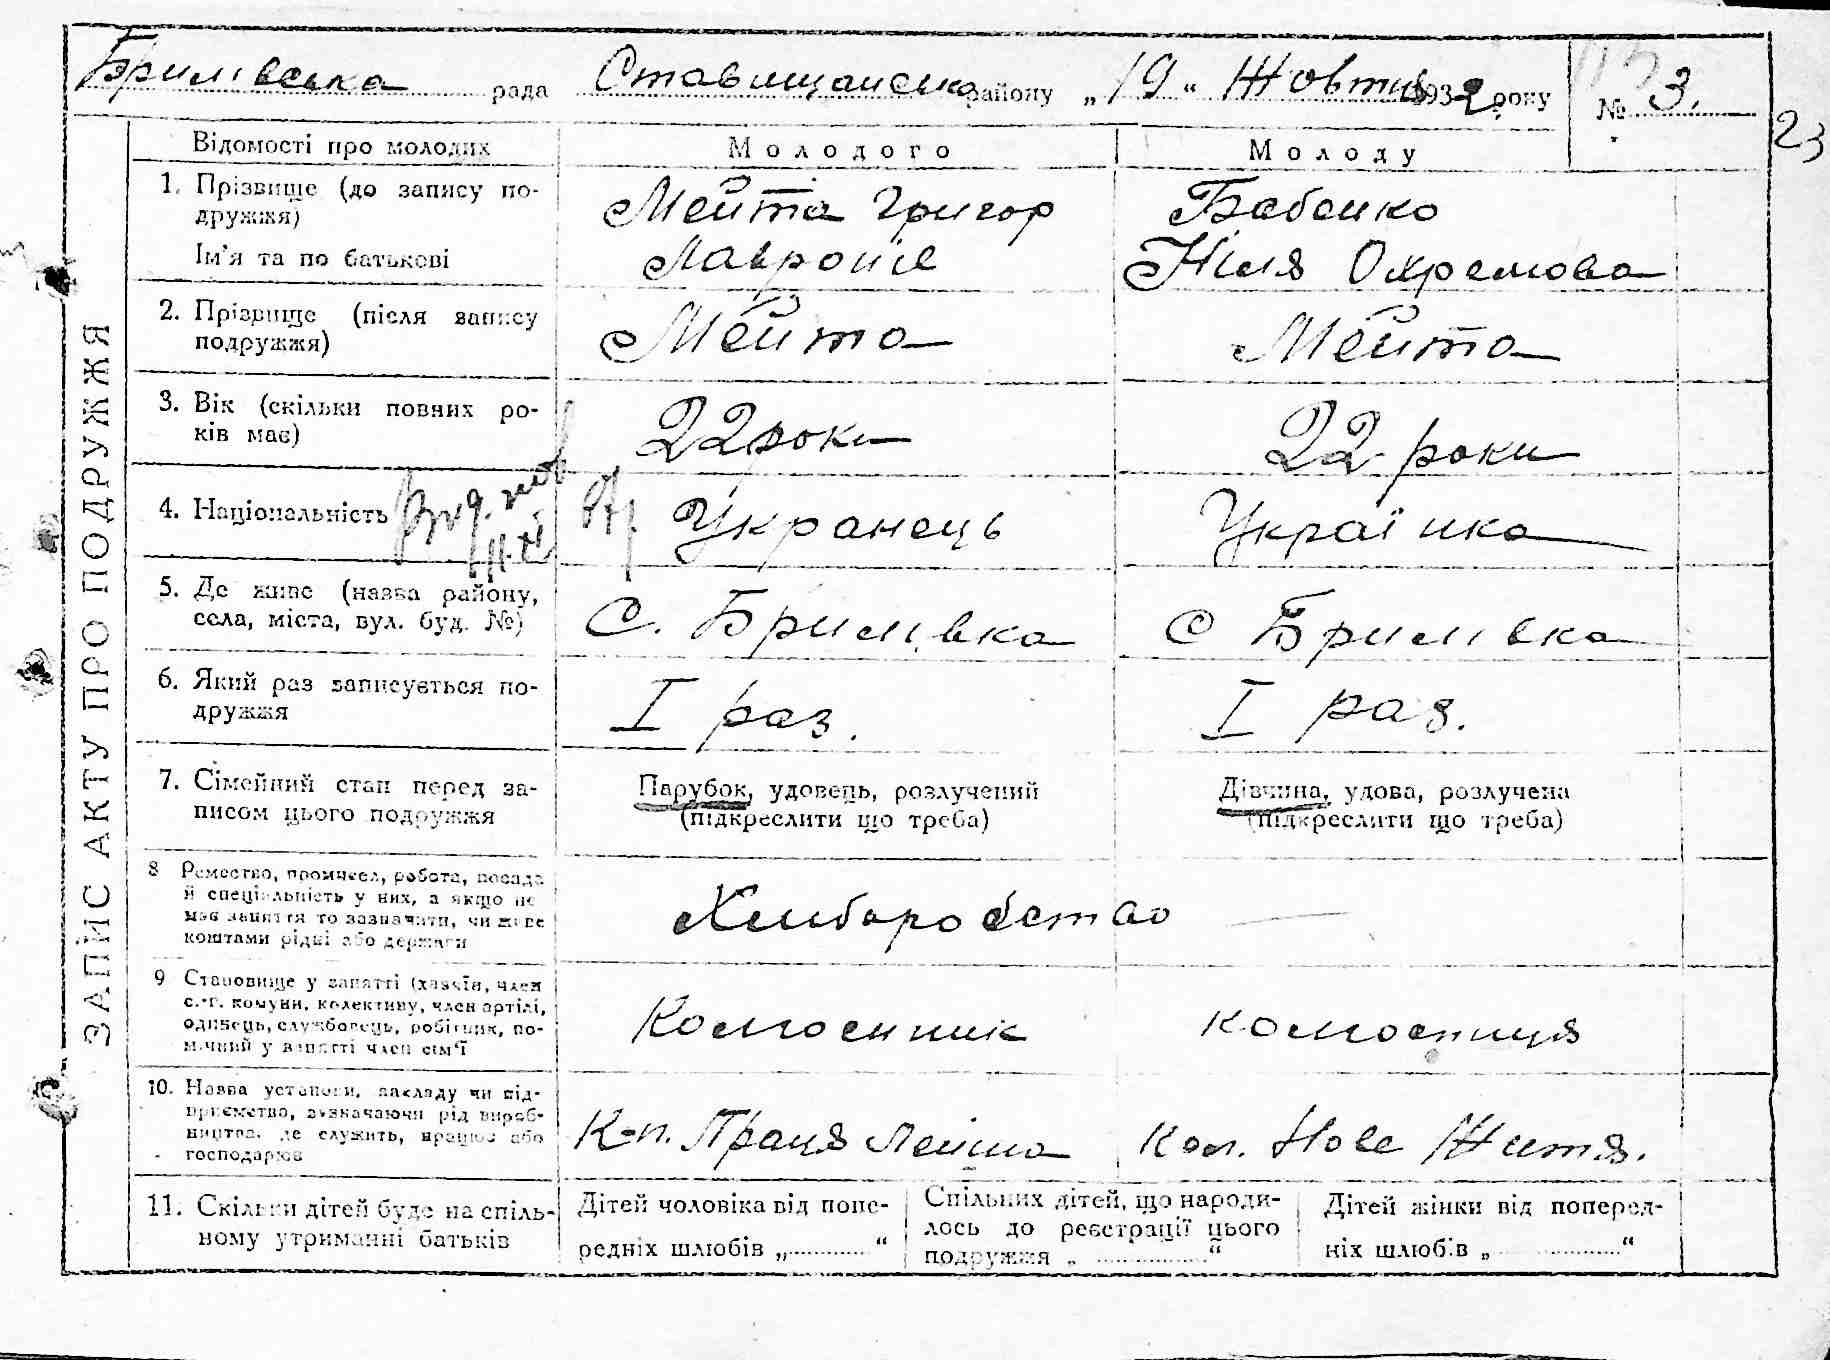 Бримівська рада Ставищанського району „19“ Жовтня 1932 року № 3.
23
ЗАПИС АКТУ ПРО ПОДРУЖЖЯ
Відомості про молодих Молодого Молоду
1. Прізвище (до запису по-
дружжя)
Ім'я та по батькові
Мейта Григор
Лавроніє
Бабенко
Ніля Охремова
2. Прізвище (після запису
подружжя)
Мейта
Мейта
3. Вік (скільки повних ро-
ків має)
22 роки
22 роки
4. Національність
Укранець
Українка
5. Де живе (назва району,
села, міста, вул. буд. №)
С. Бримівка
С Бримівка
6. Який раз записується по-
дружжя
I раз.
I раз.
7. Сімейний стан перед за-
писом цього подружжя
Парубок, удовець, розлучений
(підкреслити що треба)
Дівчина, удова, розлучена
(підкреслити що треба)
8 Ремество, промисел, робота, посада
й спеціяльність у них, а якщо не
має заняття то зазначити, чи живе
коштами рідні або держави
Хлиборобство
9 Становище у занятті (хазяїн, член
с.-г. комуни, колективу, член артілі,
одинець, службовець, робітник, по-
мічний у занятті член сім'ї
Колгоспник
колгоспниця
10. Назва установи, закладу чи під-
приємства, зазначаючи рід вироб-
ництва, де служить, працює або
господарює
К-п. Праця Леніна
Кол. Нове Життя.
11. Скільки дітей буде на спіль-
ному утриманні батьків
Дітей чоловіка від попе-
редніх шлюбів „ “
Спільних дітей, що народи-
лось до реєстрації цього
подружжя „ “
Дітей жінки від поперед-
ніх шлюбів „ “